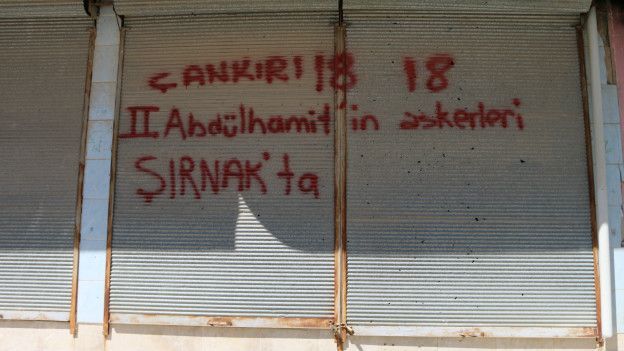 ÇANKIRI 18 18
II Abdülhamit'in askerleri
ŞIRNAK'ta